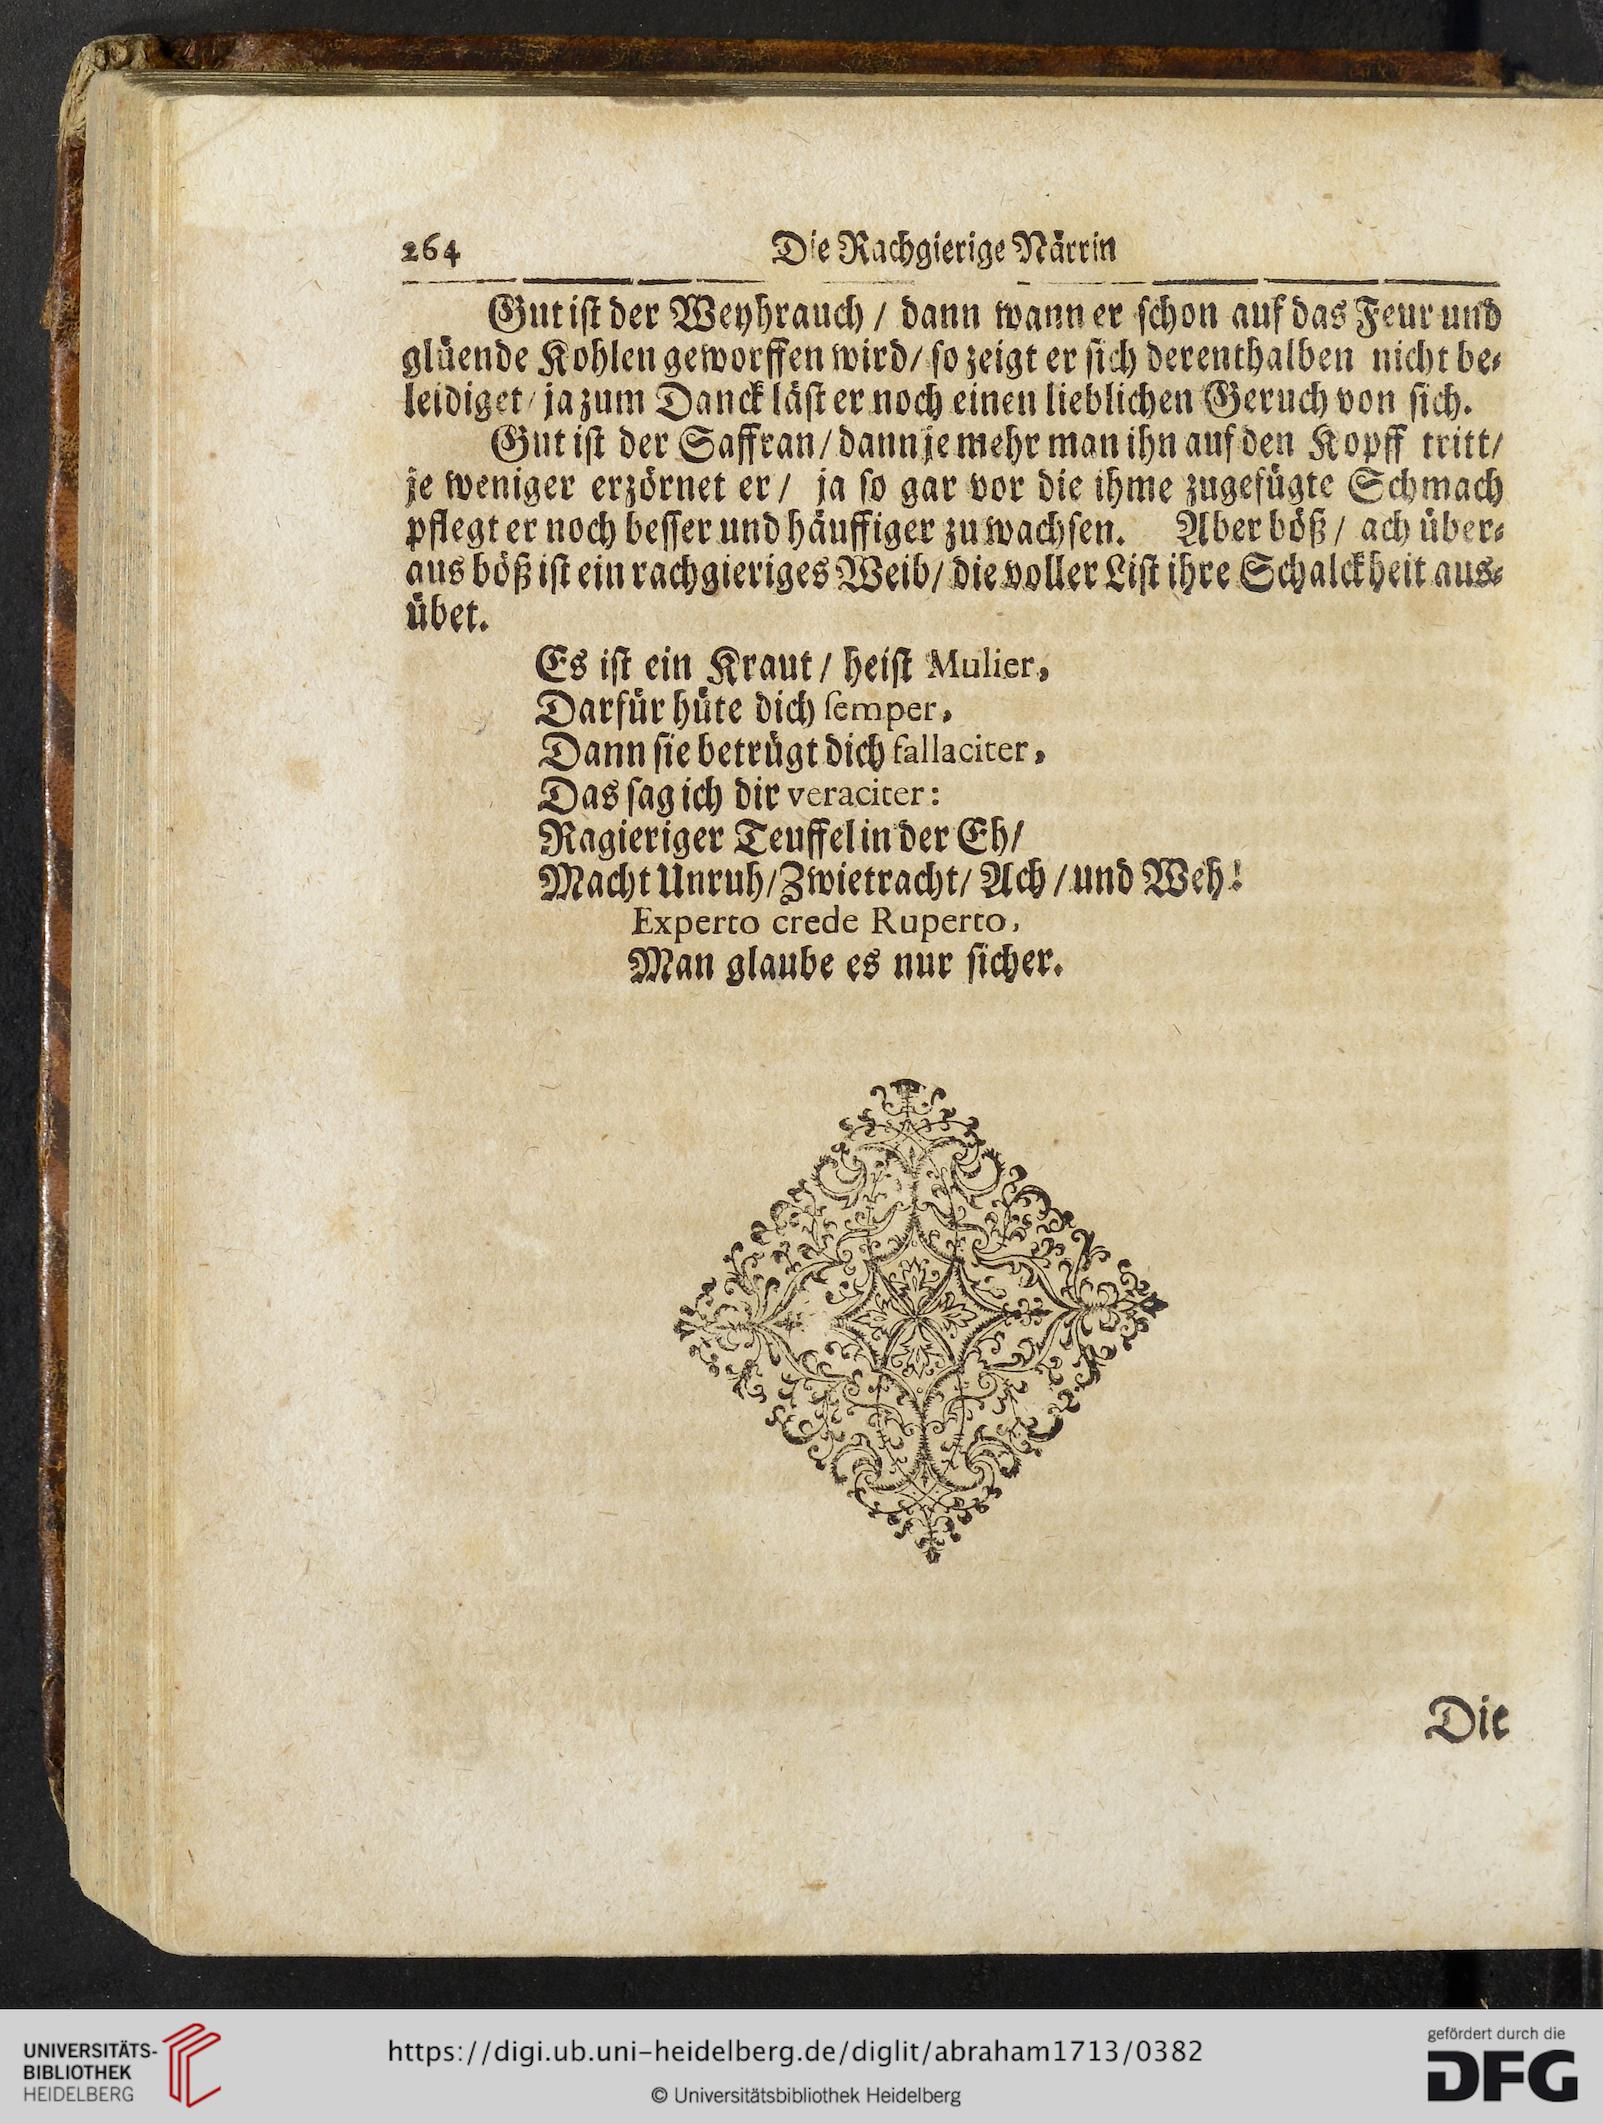 264 Die Rachgierige Närrin
Gut ist der Weyhrauch / dann wann er schon auf das Feur und
glüende Kohlen geworffen wird / so zeigt er sich derenthalben nicht be⸗
leidiget / ja zum Danck läst er noch einen lieblichen Geruch von sich.
Gut ist der Saffran / dann je mehr man ihn auf den Kopff tritt /
je weniger erzörnet er / ja so gar vor die ihme zugefügte Schmach
pflegt er noch besser und häuffiger zu wachsen. Aber böß / ach über⸗
aus böß ist ein rachgieriges Weib / die voller List ihre Schalckheit aus⸗
übet.
Es ist ein Kraut / heist Mulier,
Darfür hüte dich semper,
Dann sie betrügt dich fallaciter,
Das sag ich dir veraciter:
Ragieriger Teuffel in der Eh /
Macht Unruh / Zwietracht / Ach / und Weh!
Experto crede Ruperto,
Man glaube es nur sicher.
Die
UNIVERSITÄTS-
BIBLIOTHEK
HEIDELBERG
https://digi.ub.uni-heidelberg.de/diglit/abraham1713/0382
© Universitätsbibliothek Heidelberg
gefördert durch die
DFG